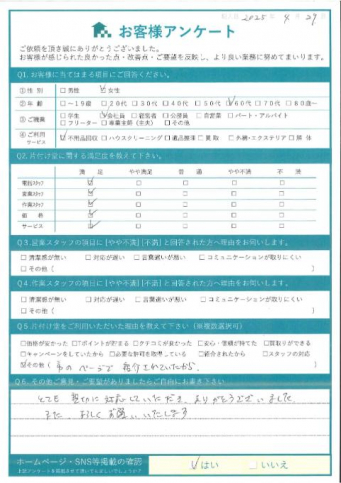 2025 4 29
お客様アンケート
ご依頼を頂き誠にありがとうございました。
お客様が感じられた良かった点・改善点・ご要望を反映し、より良い業務に努めてまいります。
Q1.お客様に当てはまる項目にご回答ください。
①性別 □男性 ☑女性
②年齢 □~19歳 □20代 □30代 □40代 □50代 ☑60代 □70代 □80歳~
③ご職業 □学生 ☑会社員 □経営者 □公務員 □自営業 □パート・アルバイト
□フリーター □専業主婦(主夫) □その他
④ご利用サービス ☑不用品回収 □ハウスクリーニング □遺品整理 □買取 □外構・エクステリア □解体
Q2.片付け堂に関する満足度を教えて下さい。
満足 やや満足 普通 やや不満 不満
電話スタッフ ☑ □ □ □ □
営業スタッフ ☑ □ □ □ □
作業スタッフ ☑ □ □ □ □
価格 ☑ □ □ □ □
サービス ☑ □ □ □ □
Q3.営業スタッフの項目に[やや不満][不満]と回答された方へ理由をお伺いします。
□清潔感が無い □対応が遅い □言葉遣いが悪い □コミュニケーションが取りにくい
□その他( )
Q4.作業スタッフの項目に[やや不満][不満]と回答された方へ理由をお伺いします。
□清潔感が無い □対応が遅い □言葉遣いが悪い □コミュニケーションが取りにくい
□その他( )
Q5.片付け堂をご利用いただいた理由を教えて下さい(※複数選択可)
□価格が安かった □Tポイントが貯まる □クチコミが良かった □安心・信頼が持てた □買取りができる
□キャンペーンをしていたから □必要な許可を取得している □紹介されたから □スタッフの対応
☑その他( のページで紹介されていたから )
Q6.その他ご意見・ご要望がありましたらご自由にお書き下さい
とても親切に対応していただき、ありがとうございました
また、よろしくお願いいたします
ホームページ・SNS等掲載の確認
上記アンケートを掲載させて頂いてもよろしいでしょうか?
☑はい □いいえ